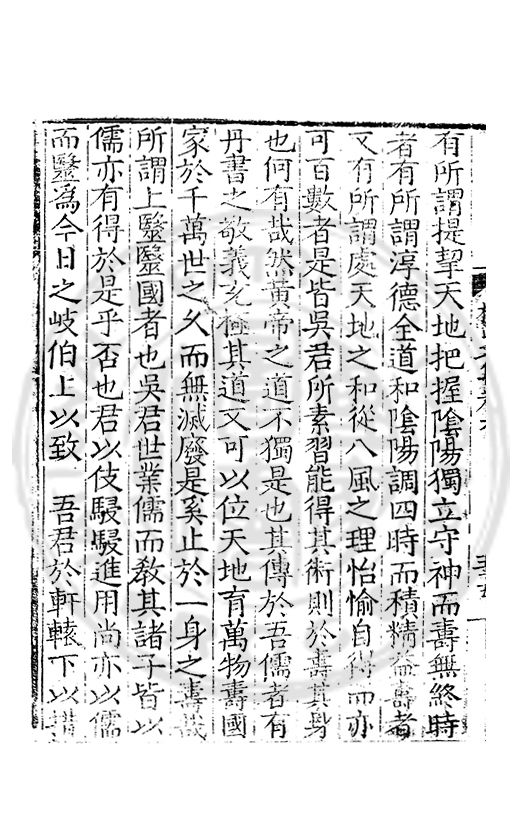 有所謂提挈天地把握陰陽獨立守神而壽無終時
者有所謂淳德全道和陰陽調四時而積精益壽者
又有所謂處天地之和從八風之理怡愉自得而亦
可百數者是皆吳君所素習能得其術則於壽其身
也何有哉然黃帝之道不獨是也其傳於吾儒者有
丹書之敬義充極其道又可以位天地育萬物壽國
家於千萬世之久而無滅廢是奚止於一身之壽哉
所謂上毉毉國者也吳君世業儒而教其諸子皆以
儒亦有得於是乎否也君以伎駸駸進用尚亦以儒
而毉爲今日之岐伯上以致 吾君於軒轅下以躋